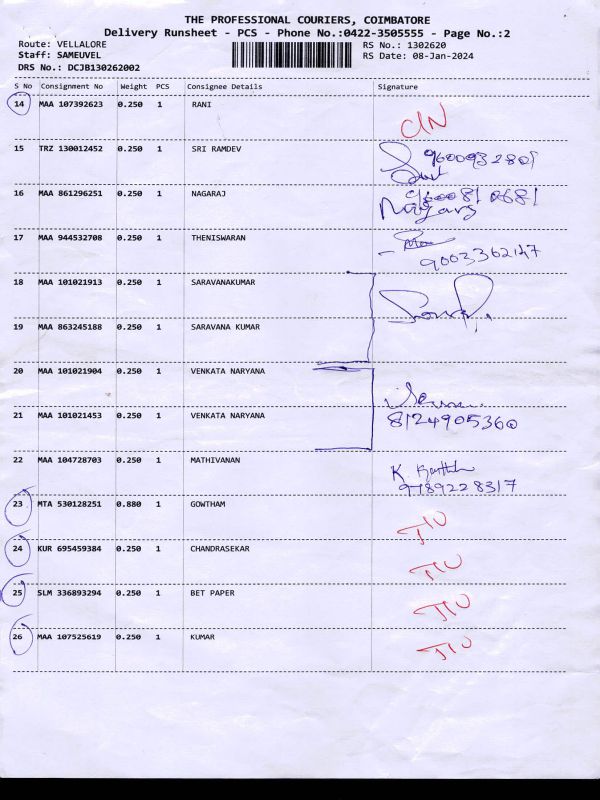 THE PROFESSIONAL COURIERS, COIMBATORE
Delivery Runsheet - PCS - Phone No.:0422-3505555 - Page No.:2
Route: VELLALORE RS No.: 1302620
Staff: SAMEUVEL RS Date: 08-Jan-2024
DRS No.: DCJB130262002
S No Consignment No Weight PCS Consignee Details Signature
14 MAA 107392623 0.250 1 RANI
15 TRZ 130012452 0.250 1 SRI RAMDEV
16 MAA 861296251 0.250 1 NAGARAJ
Nagaraj
17 MAA 944532708 0.250 1 THENISWARAN
9003362147
18 MAA 101021913 0.250 1 SARAVANAKUMAR
19 MAA 863245188 0.250 1 SARAVANA KUMAR
20 MAA 101021904 0.250 1 VENKATA NARYANA
21 MAA 101021453 0.250 1 VENKATA NARYANA 8124905360
22 MAA 104728703 0.250 1 MATHIVANAN K.
9789228317
23 MTA 530128251 0.880 1 GOWTHAM
24 KUR 695459384 0.250 1 CHANDRASEKAR
25 SLM 336893294 0.250 1 BET PAPER
26 MAA 107525619 0.250 1 KUMAR